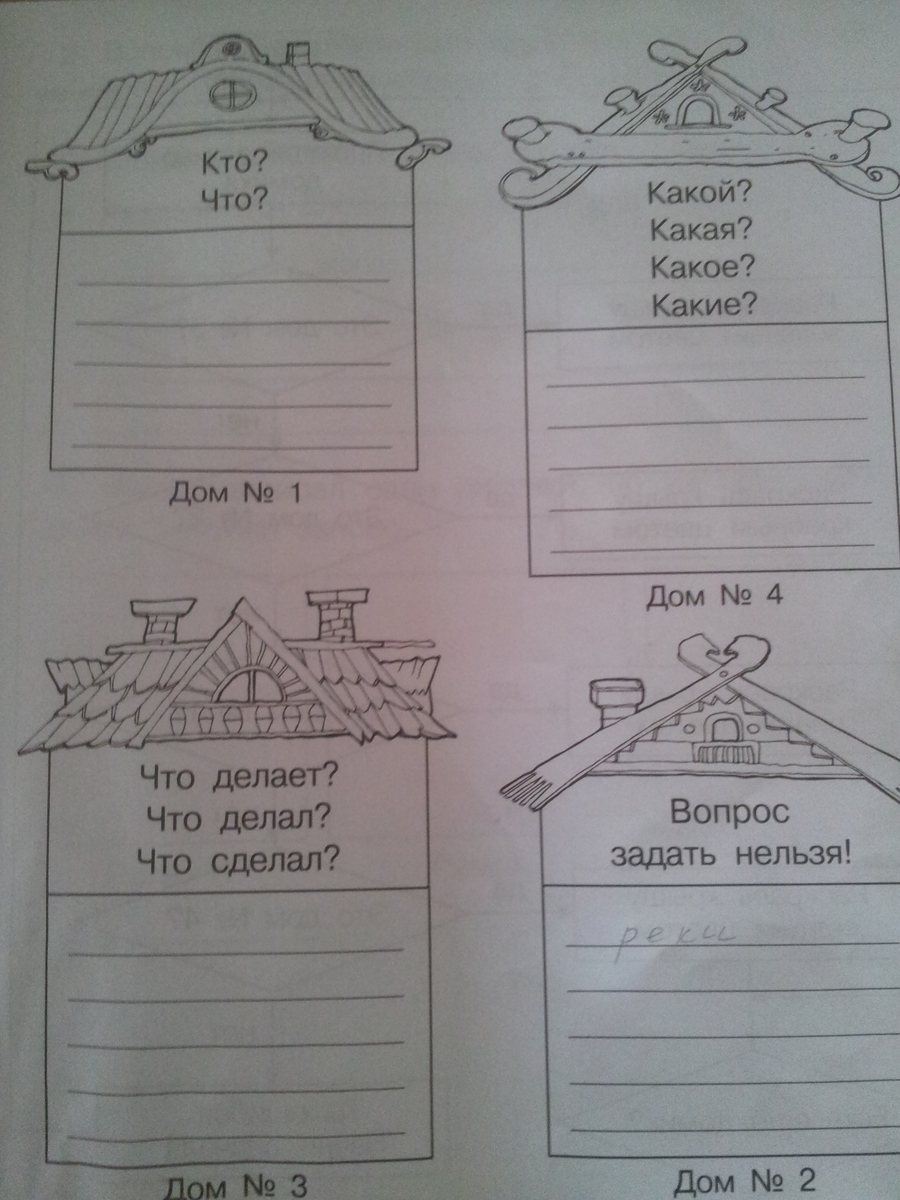 Кто?
Что?
Дом № 1
Какой?
Какая?
Какое?
Какие?
Дом № 4
Что делает?
Что делал?
Что сделал?
Дом № 3
Вопрос
задать нельзя!
реки
Дом № 2